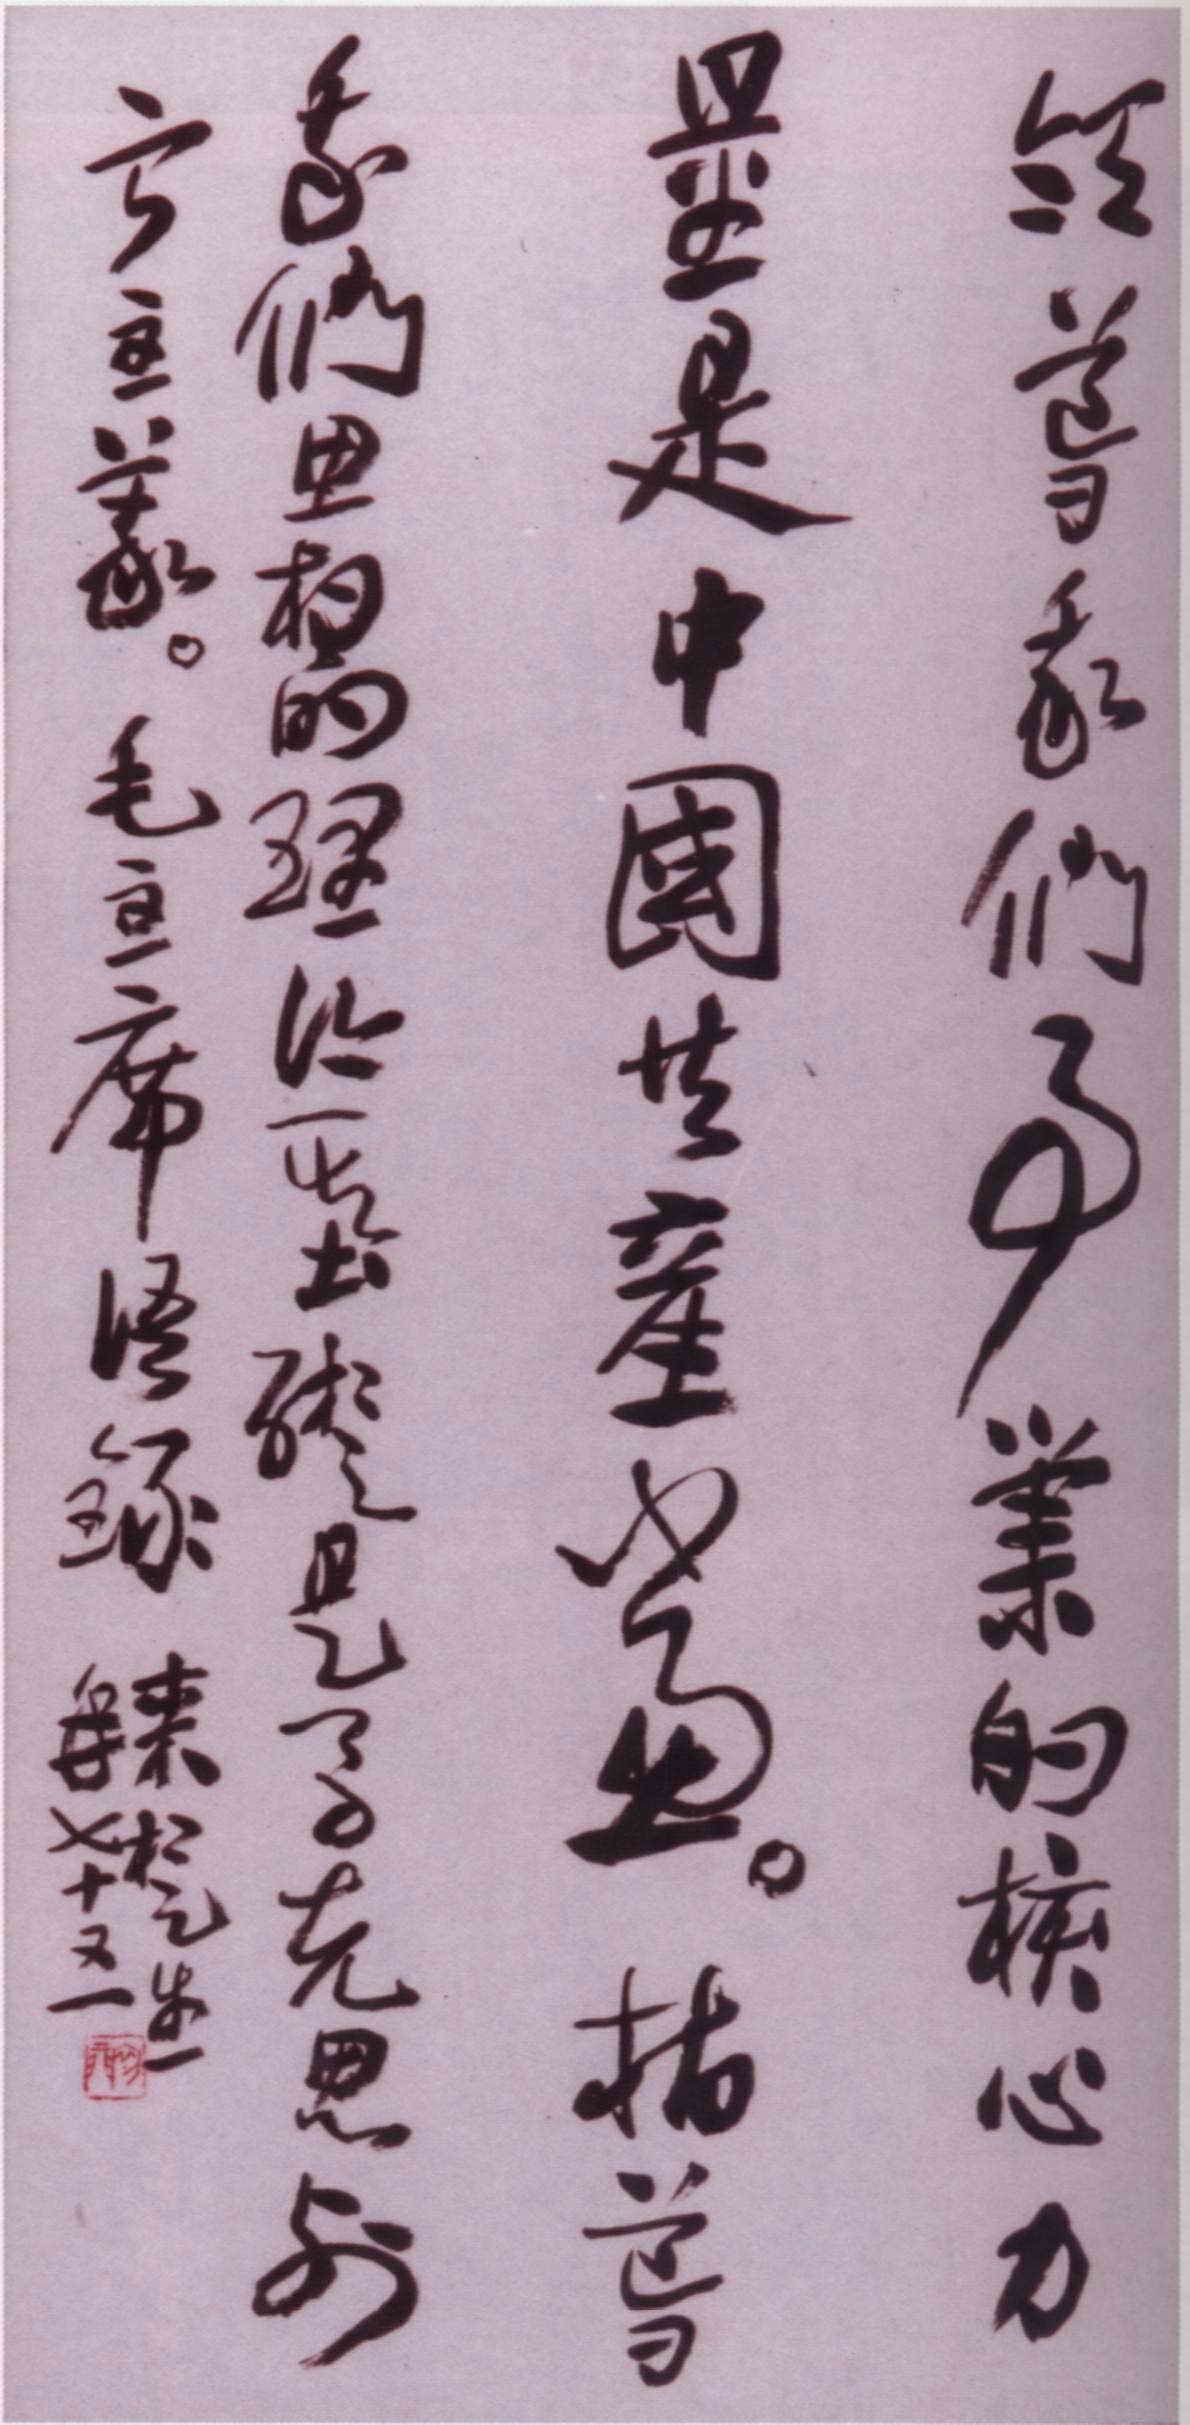 領導我們事業的核心力
量是中國共產党。指導
我們思想的理論基礎是馬克思列
寧主義。毛主席語錄
年七十又一